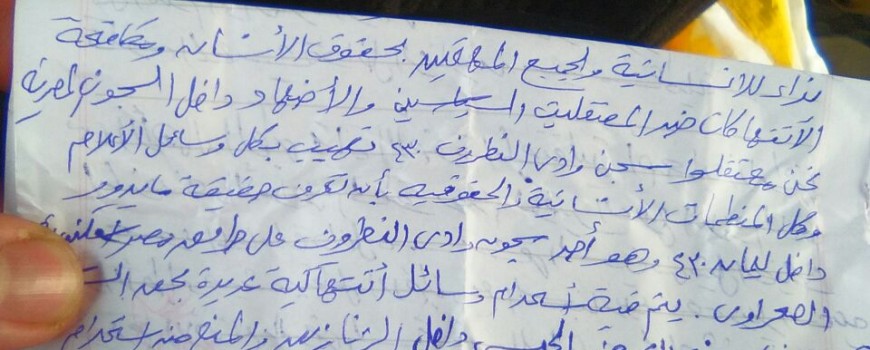 نداء للانسانية ولجميع المهتمين بحقوق الأنسان ومكافحة
الأنتهاكات ضد المعتقلين السياسين والأضطهاد داخل السجون المصرية
نحن معتقلوا سجن وادى النطرون ٤٣٠ نهيب بكل وسائل الأعلام
وكل المنظمات الأنسانية والحقوقيه بأن تعرف حقيقة مايدور
داخل ليمان ٤٣٠ وهو أحد سجون وادى النطرون على طريق مصر
الصحراوى . يتم فيه أستخدام وسائل أنتهاكية عديدة بحق
داخل الزنازين والمنع من استخدام